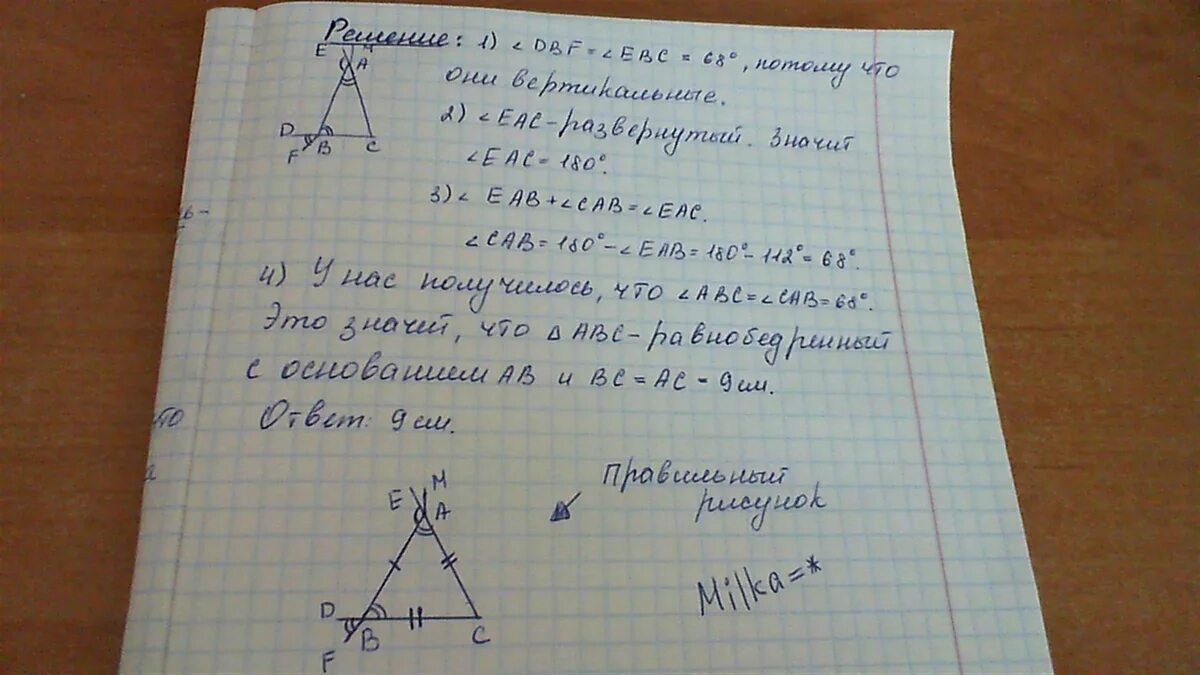 Решение: 1) ∠DBF = ∠EBC = 68°, потому что
они вертикальные.
2) ∠EAC – развернутый. Значит
∠EAC = 180°.
3) ∠EAB + ∠CAB = ∠EAC.
∠CAB = 180° – ∠EAB = 180° – 112° = 68°.
4) У нас получилось, что ∠ABC = ∠CAB = 68°.
Это значит, что △ABC – равнобедренный
с основанием AB и BC = AC = 9 см.
Ответ: 9 см.
E M
A
D
F B C
Правильный
рисунок
E M
A
D
B C
F
Milka=*